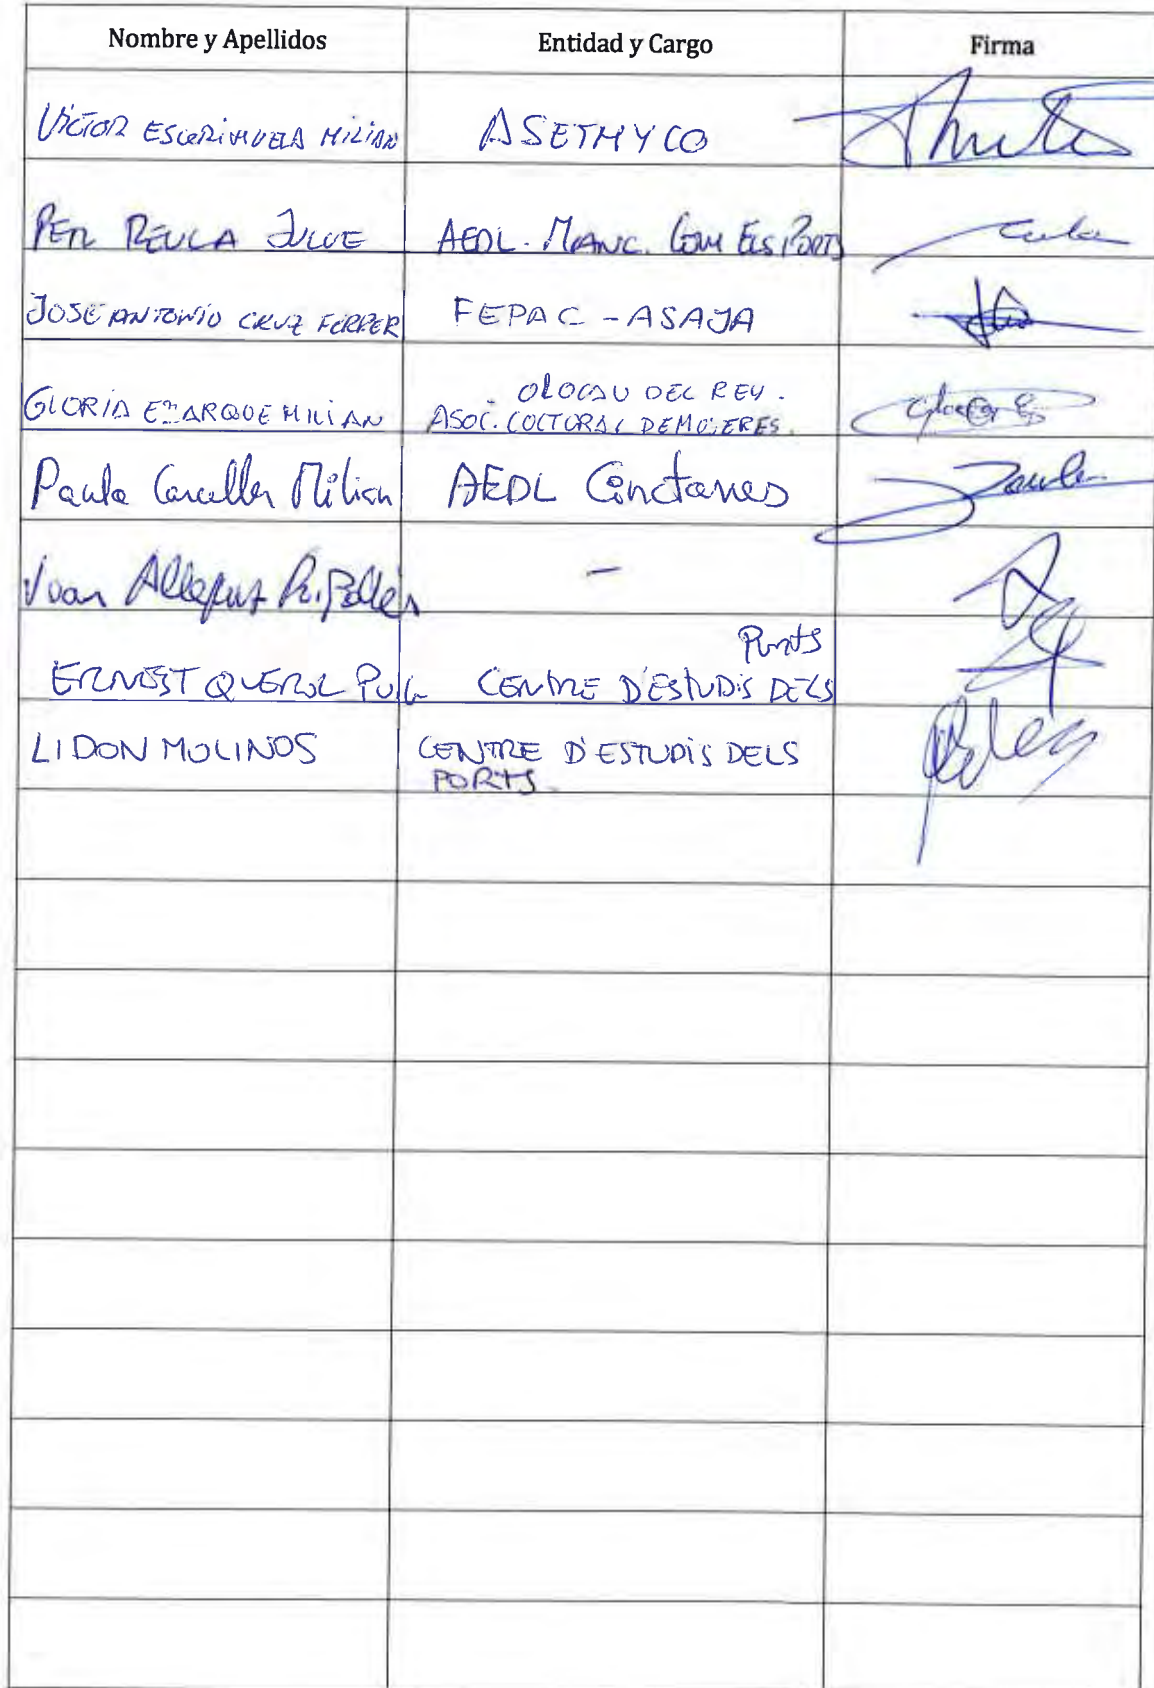 Nombre y Apellidos Entidad y Cargo Firma
VICTOR ESCORIHUELA MILIAN ASETMYCO
PER REULA JULVE AEDL. MANC. COM ELS PORTS
JOSE ANTONIO CRUZ FERRER FEPAC - ASAJA
. OLOCAU DEL REY.
GLORIA EZARQUE MILIAN ASOC. CULTURAL DE MUJERES.
Paula Carceller Milian AEDL Cinctorres
Joan Allepuz Ripollés -
Ports
ERNEST QUEROL PUIG CENTRE D'ESTUDIS DELS
LIDON MOLINOS CENTRE D'ESTUDIS DELS
PORTS.